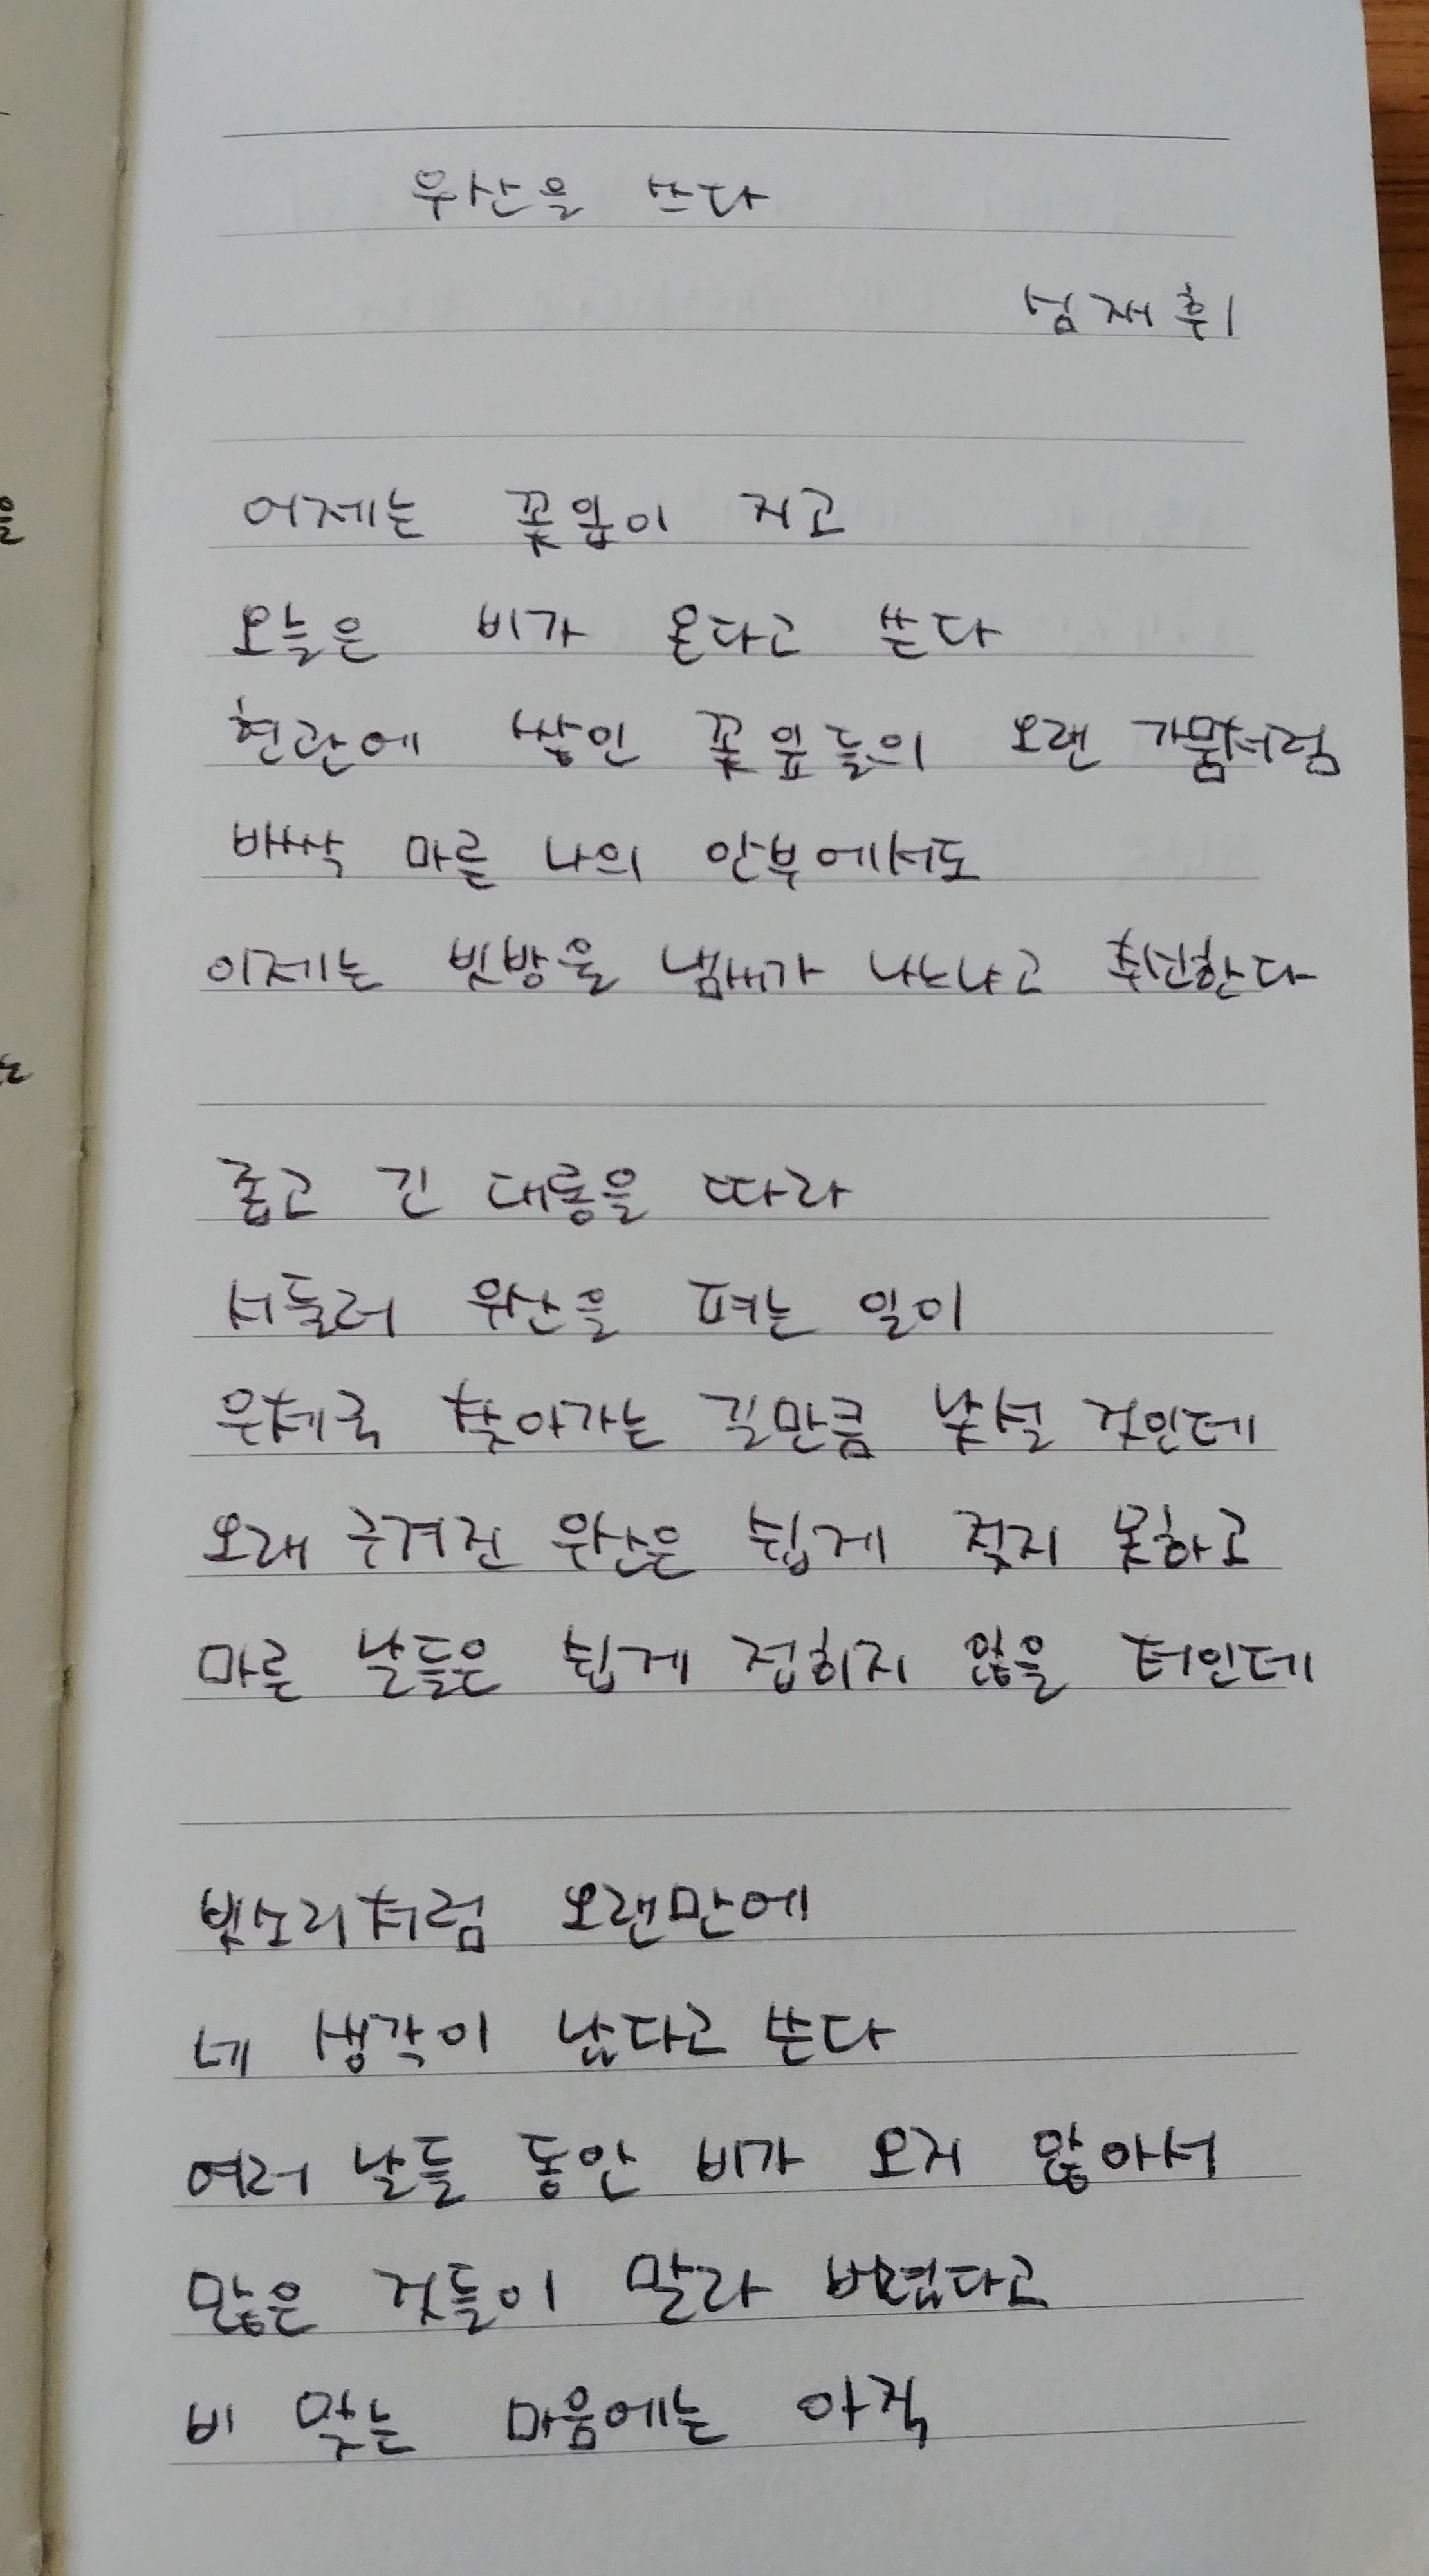 우산을 쓰다
심재휘
어제는 꽃잎이 지고
오늘은 비가 온다고 쓴다
현관에 쌓인 꽃잎들의 오랜 가뭄처럼
바싹 마른 나의 안부에서도
이제는 빗방울 냄새가 나느냐고 추신한다
좁고 긴 대롱을 따라
서둘러 우산을 펴는 일이
우체국 찾아가는 길만큼 낯설 것인데
오래 구겨진 우산은 쉽게 젖지 못하고
마른 날들은 쉽게 접히지 않을 터인데
빗소리처럼 오랜만에
네 생각이 났다고 쓴다
여러 날들 동안 비가 오지 않아서
많은 것들이 말라 버렸다고
비 맞는 마음에는 아직
을